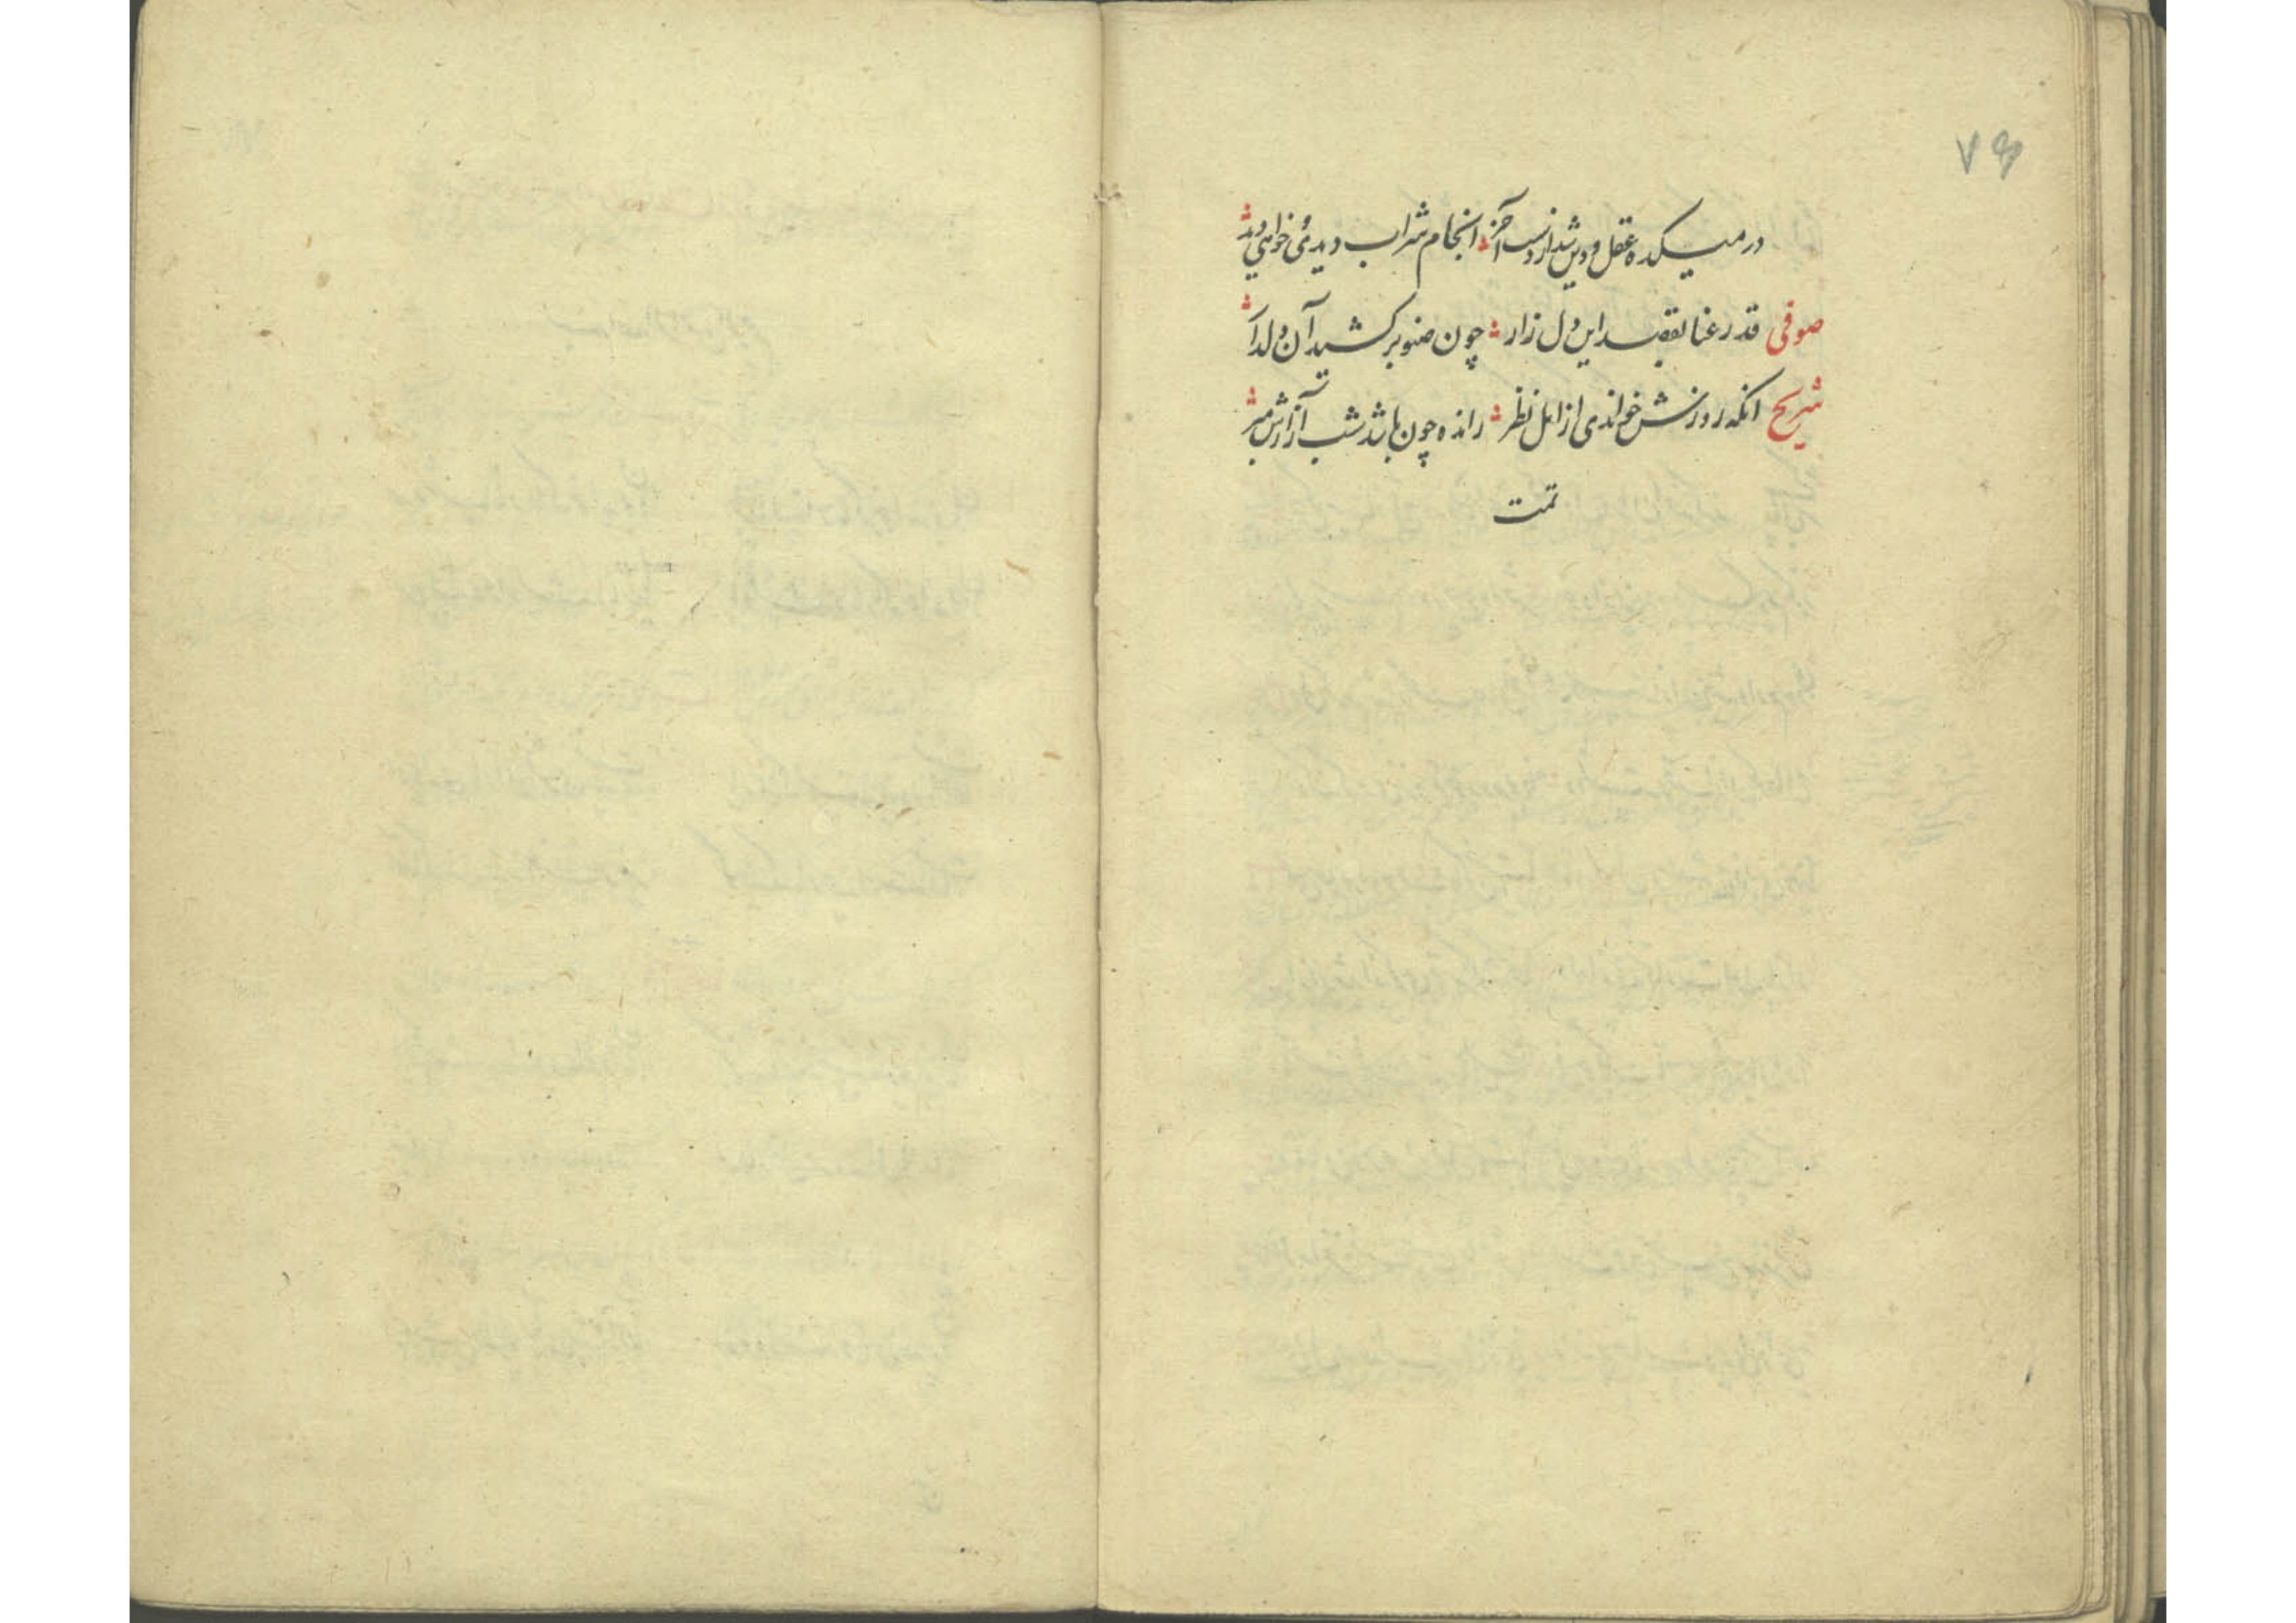 ۷۵
در میکده عقل و دین شد از دست آخر انجام شراب دیدئ خواهی دید
صوفی قد رعنا بقصد این دل زار چون صنوبر کشید آن دلدار
شریح انکه روزش خواندی از اهل نظر رانده چون باشد شب آزارش مبر
تمت